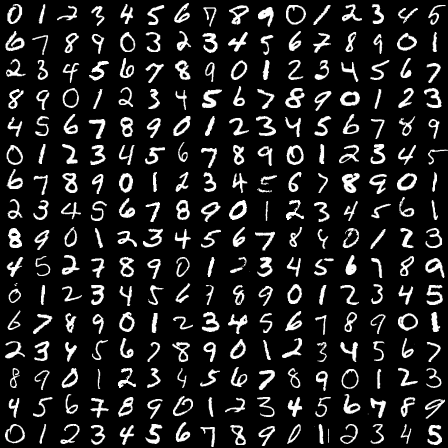 0 1 2 3 4 5 6 7 8 9 0 1 2 3 4 5
6 7 8 9 0 3 2 3 4 5 6 7 8 9 0 1
2 3 4 5 6 7 8 9 0 1 2 3 4 5 6 7
8 9 0 1 2 3 4 5 6 7 8 9 0 1 2 3
4 5 6 7 8 9 0 1 2 3 4 5 6 7 8 9
0 1 2 3 4 5 6 7 8 9 0 1 2 3 4 5
6 7 8 9 0 1 2 3 4 5 6 7 8 9 0 1
2 3 4 5 6 7 8 9 0 1 2 3 4 5 6 1
8 9 0 1 2 3 4 5 6 7 8 9 0 1 2 3
4 5 2 7 8 9 0 1 2 3 4 5 6 7 8 9
0 1 2 3 4 5 6 7 8 9 0 1 2 3 4 5
6 7 8 9 0 1 2 3 4 5 6 7 8 9 0 1
2 3 4 5 6 7 8 9 0 1 2 3 4 5 6 7
8 9 0 1 2 3 4 5 6 7 8 9 0 1 2 3
4 5 6 7 8 9 0 1 2 3 4 5 6 7 8 9
0 1 2 3 4 5 6 7 8 9 0 1 2 3 4 5